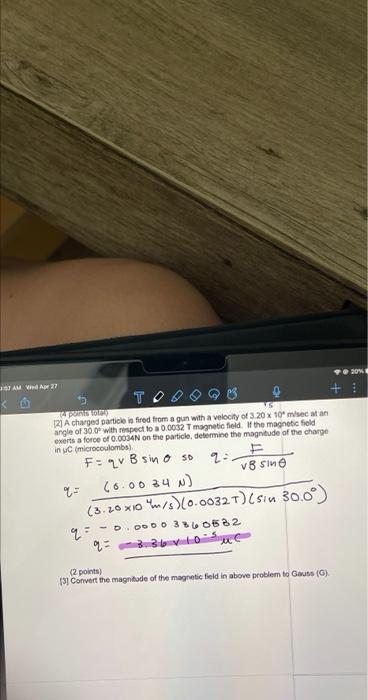 3:07 AM Wed Apr 27
20%
(4 points total)
[2] A charged particle is fired from a gun with a velocity of 3.20 x 10⁴ m/sec at an
angle of 30.0° with respect to a 0.0032 T magnetic field. If the magnetic field
exerts a force of 0.0034N on the particle, determine the magnitude of the charge
in μC (microcoulombs).
F = qvB sin θ so q = F / vB sinθ
q = (0.0034 N)
(3.20 x10⁴m/s)(0.0032T)(sin 30.0°)
q = -0.00003360582
q = -3.36 x 10⁻⁵ μC
(2 points)
[3] Convert the magnitude of the magnetic field in above problem to Gauss (G).